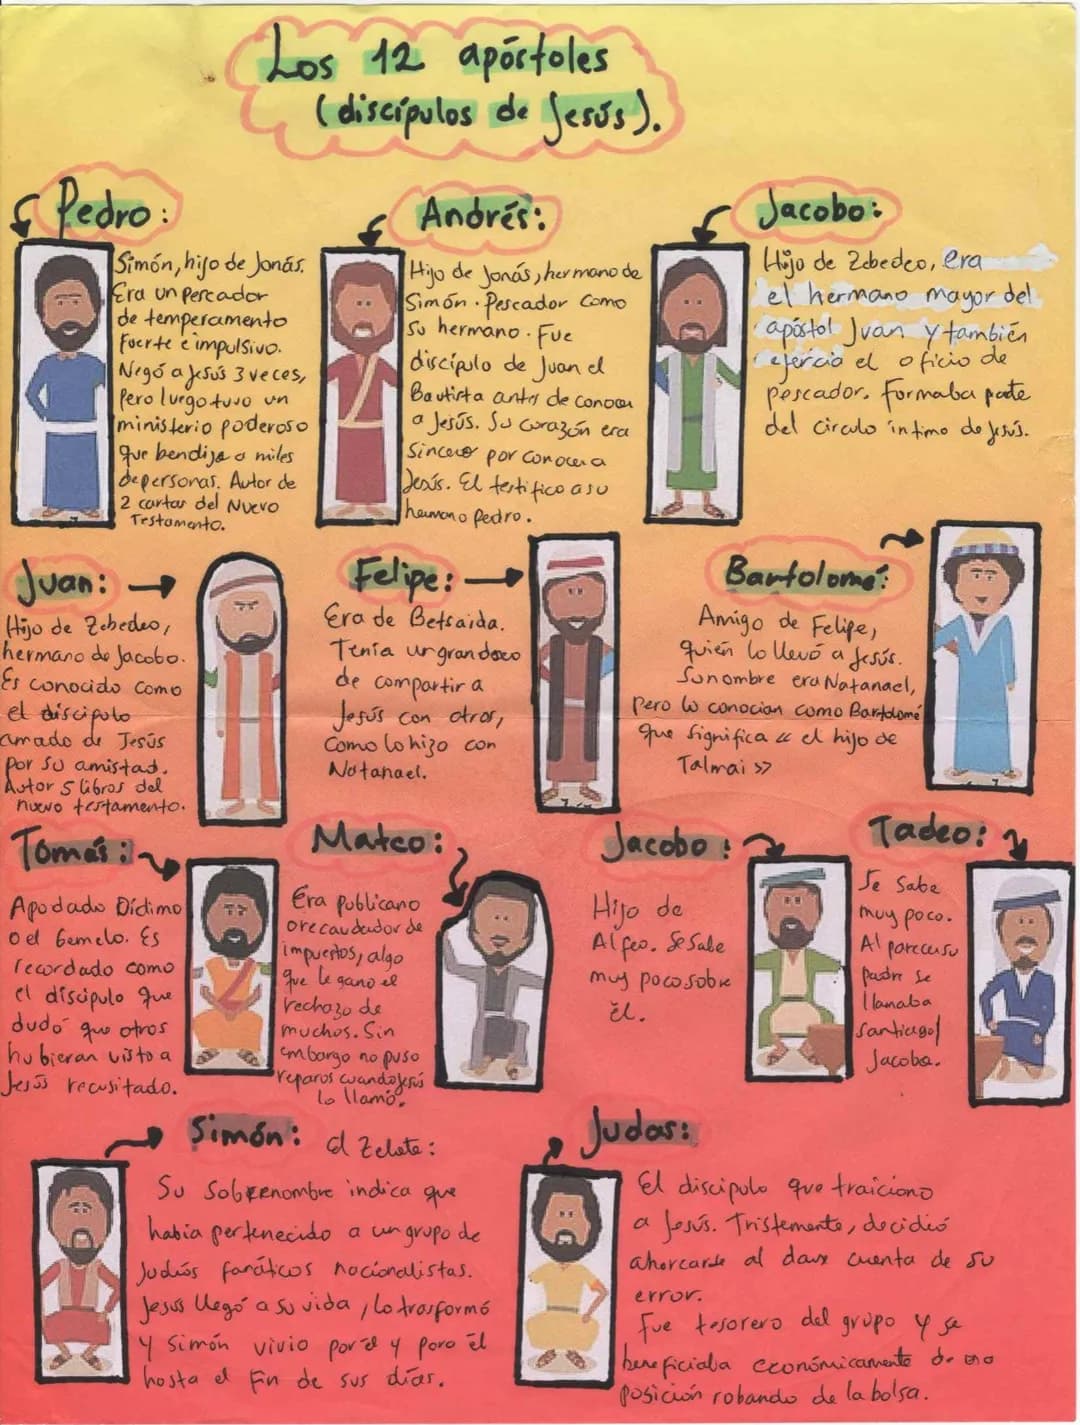 Los 12 apóstoles
(discípulos de Jesús).
Pedro:
Simón, hijo de Jonás.
Era un pescador
de temperamento
fuerte e impulsivo.
Negó a Jesús 3 veces,
pero luego tuvo un
ministerio poderoso
que bendijo a miles
de personas. Autor de
2 cartas del Nuevo
Testamento.
Andrés:
Hijo de Jonás, hermano de
Simón. Pescador como
su hermano. Fue
discípulo de Juan el
Bautista antes de conocer
a Jesús. Su corazón era
sincero por conocer a
Jesús. El testifico a su
hermano Pedro.
Jacobo:
Hijo de Zebedeo, era
el hermano mayor del
apóstol Juan y también
ejercia el oficio de
pescador. Formaba parte
del circulo íntimo de Jesús.
Juan:
Hijo de Zebedeo,
hermano de Jacobo.
Es conocido como
el discípulo
amado de Jesús
por su amistad.
Autor 5 libros del
nuevo testamento.
Felipe:
Era de Betsaida.
Tenía un gran deseo
de compartir a
Jesús con otros,
como lo hizo con
Natanael.
Bartolomé:
Amigo de Felipe,
quién lo llevó a Jesús.
Su nombre era Natanael,
pero lo conocian como Bartolomé
que significa « el hijo de
Talmai »
Tomás:
Apodado Dídimo
o el Gemelo. Es
recordado como
el discípulo que
dudó que otros
hubieran visto a
Jesús recusitado.
Mateo:
Era publicano
o recaudador de
impuestos, algo
que le gano el
rechazo de
muchos. Sin
embargo no puso
reparos cuando Jesús
lo llamó.
Jacobo:
Hijo de
Alfeo. Se Sabe
muy poco sobre
él.
Tadeo:
Se Sabe
muy poco.
Al parecer su
padre se
llamaba
santiago/
Jacobo.
Simón: el Zelote:
Su Sobrenombre indica que
habia pertenecido a un grupo de
Judiós fanáticos nacionalistas.
Jesus llegó a su vida, lo trasformó
y Simón vivio por él y para él
hasta el fin de sus días.
Judas:
El discipulo que traiciono
a Jesús. Tristemente, decidió
ahorcarse al darse cuenta de su
error.
Fue tesorero del grupo y se
beneficiaba económicamente de esa
posición robando de la bolsa.